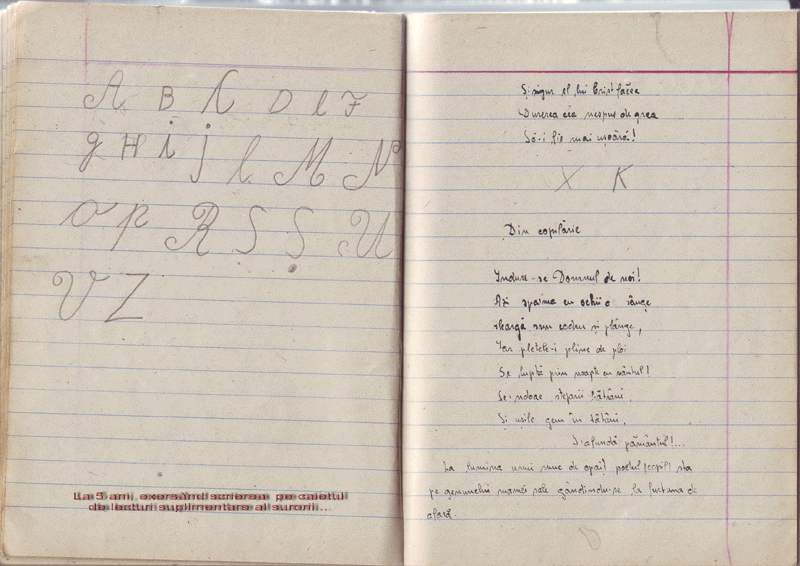 A B C D E F
G H I J L M N
O P R S Ș U
V Z
La 5 ani, exersând scrierea pe caietul
de lecturi suplimentare al surorii...
Și sigur el lui Crist
Durerea cea nespus de grea
Să-i fie mai ușoară!
X K
Din copilărie
Îndure-se Domnul de noi!
Azi spaima cu ochii o sânge
și plânge,
Iar pletele-i pline de ploi
Se luptă prin noapte cu vântul!
Se-ndoae stejarii bătrâni,
Și ușile gem în țâțâni,
S'afundă pământul!...
La lumina unui muc de opaiț poetul (copil) sta
pe genunchii mamei sale gândindu-se la furtuna de
afară.